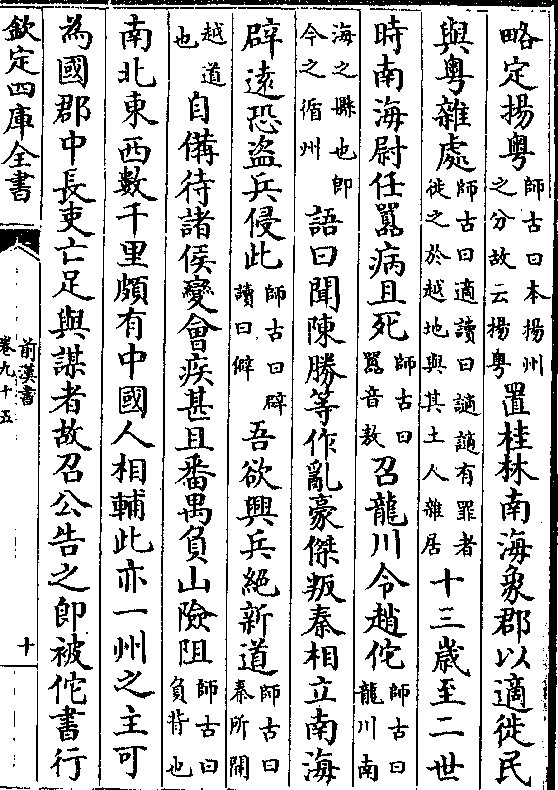 略定揚粤師古曰本揚州之分故云揚粤置桂林南海象郡以適徙民
與粤雜處師古曰適讀曰讁讁有罪者徙之於越地與其土人雜居十三歲至二世
時南海尉任嚻病且死師古曰嚻音敖召龍川令趙佗師古曰龍川南
海之縣也即今之循州語曰聞陳勝等作亂豪傑叛秦相立南海
辟逺恐盗兵侵此師古曰辟讀曰僻吾欲興兵絶新道師古曰秦所開
越道也自備待諸侯變會疾甚且番禺負山險阻師古曰負背也
南北東西數千里頗有中國人相輔此亦一州之主可
為國郡中長吏亡足與謀者故召公告之即被佗書行
欽定四庫全書
前漢書
卷九十五
十